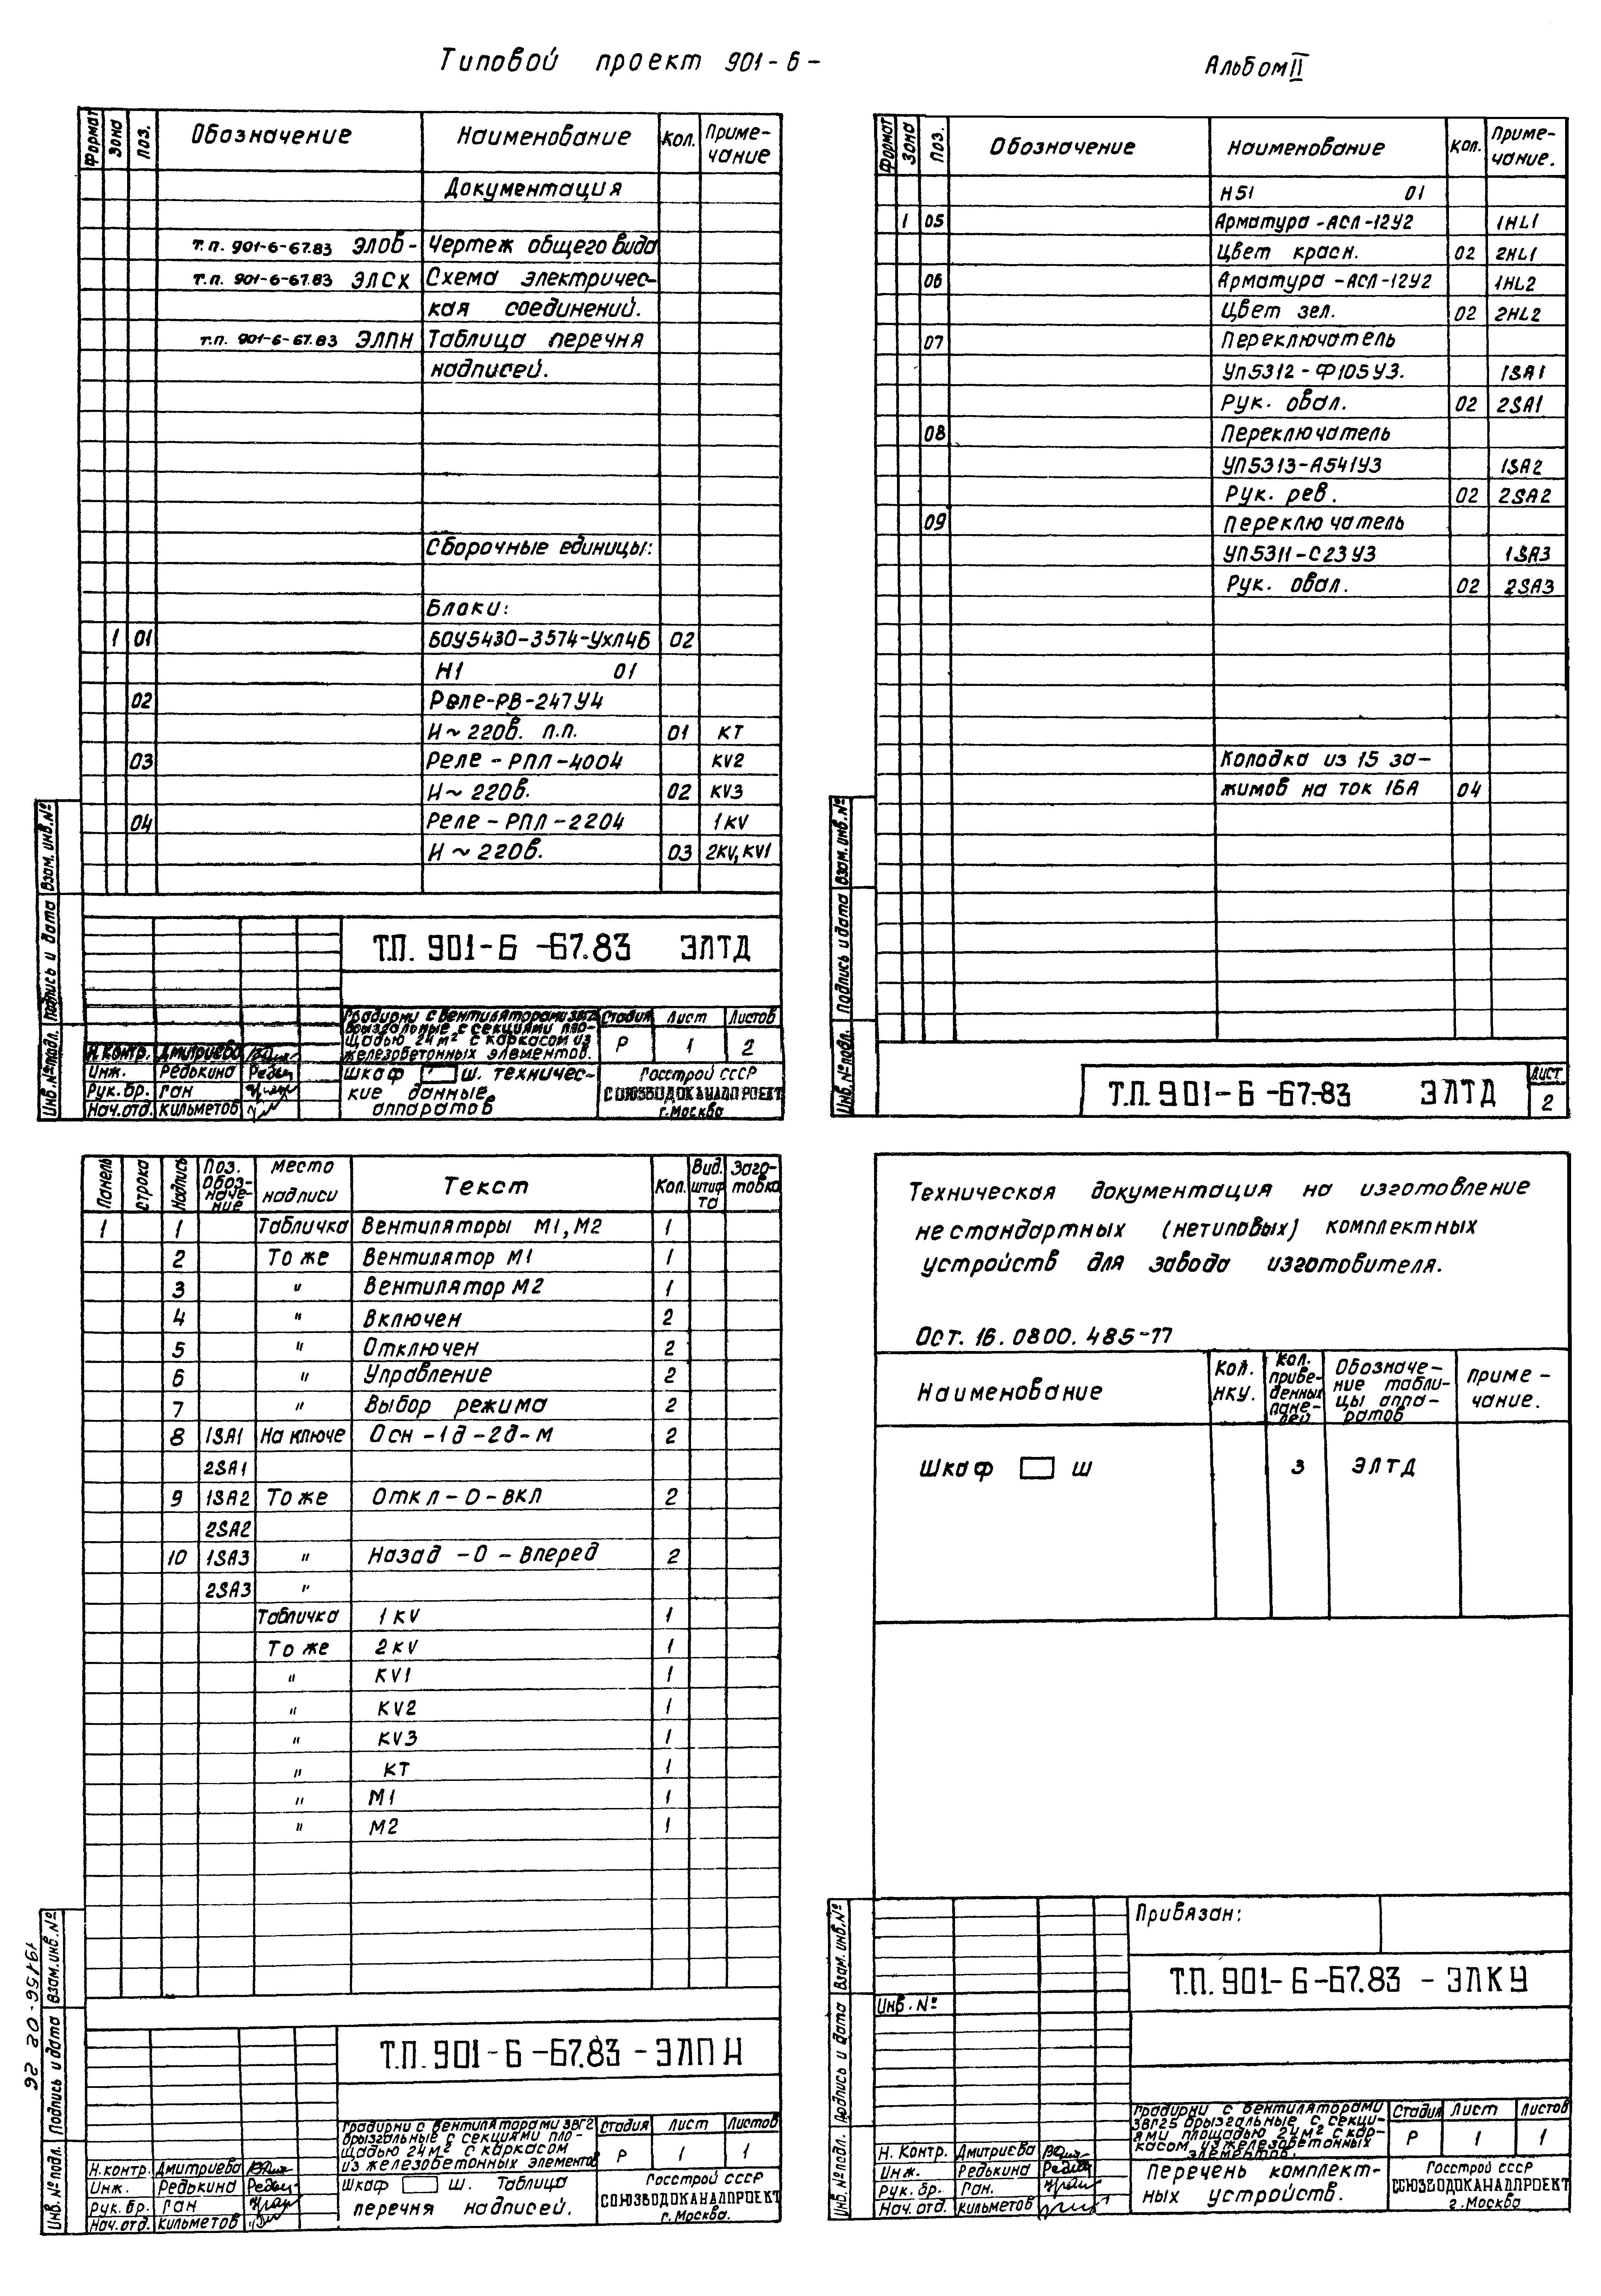 Типовой проект 901-6-
Альбом II
Формат Зона Поз. Обозначение Наименование Кол. Приме-
чание
Документация
т.п. 901-6-67.83 ЭЛОВ- Чертеж общего вида
т.п. 901-6-67.83 ЭЛСХ Схема электричес-
кая соединений.
т.п. 901-6-67.83 ЭЛПН Таблица перечня
надписей.
Сборочные единицы:
Блоки:
1 01 БОУ5430-3574-УХЛ4Б 02
Н1 01
02 Реле-РВ-247У4
И~220в. п.п. 01 КТ
03 Реле-РПЛ-4004 KV2
И~220в. 02 KV3
04 Реле-РПЛ-2204 1KV
И~220в. 03 2KV, KV1
Взам. инв. №
Подпись и дата
Инв. № подл.
Т.П. 901-6-67.83 ЭЛТД
Градирни с вентиляторами 3ВГ2 Стадия Лист Листов
брызгальные с секциями пло-
щадью 24м² с каркасом из Р 1 2
железобетонных элементов.
Н.контр. Дмитриева
Инж. Редькина
Рук. бр. Ган
Нач. отд. Кильметов
Шкаф ш. Техничес-
кие данные
аппаратов
Госстрой СССР
СОЮЗВОДОКАНАЛПРОЕКТ
г. Москва
Формат Зона Поз. Обозначение Наименование Кол. Приме-
чание.
Н51 01
1 05 Арматура-АСЛ-12У2 1HL1
Цвет красн. 02 2HL1
06 Арматура-АСЛ-12У2 1HL2
Цвет зел. 02 2HL2
07 Переключатель
УП5312-Ф105У3. 1SA1
Рук. овал. 02 2SA1
08 Переключатель
УП5313-А541У3 1SA2
Рук. рев. 02 2SA2
09 Переключатель
УП5311-С23У3 1SA3
Рук. овал. 02 2SA3
Колодка из 15 за-
жимов на ток 16А 04
Взам. инв. №
Подпись и дата
Инв. № подл.
Т.П. 901-6-67.83 ЭЛТД
Лист
2
Панель Строка Надпись Поз. Обозна-чение Место надписи Текст Кол. Вид. шрифта Заго-товка
1 1 Табличка Вентиляторы М1, М2 1
2 То же Вентилятор М1 1
3 " Вентилятор М2 1
4 " Включен 2
5 " Отключен 2
6 " Управление 2
7 " Выбор режима 2
8 1SA1 На ключе Осн-1д-2д-М 2
2SA1
9 1SA2 То же Откл-О-вкл 2
2SA2
10 1SA3 " Назад-О-Вперед 2
2SA3 "
Табличка 1KV 1
То же 2KV 1
" KV1 1
" KV2 1
" KV3 1
" КТ 1
" М1 1
" М2 1
19516-02 26
Взам. инв. №
Подпись и дата
Инв. № подл.
Т.П. 901-6-67.83-ЭЛПН
Градирни с вентиляторами 3ВГ2 Стадия Лист Листов
брызгальные с секциями пло-
щадью 24м² с каркасом Р 1 1
из железобетонных элементов
Н.контр. Дмитриева
Инж. Редькина
Рук. бр. Ган
Нач. отд. Кильметов
Шкаф ш. Таблица
перечня надписей.
Госстрой СССР
СОЮЗВОДОКАНАЛПРОЕКТ
г. Москва.
Техническая документация на изготовление
нестандартных (нетиповых) комплектных
устройств для завода изготовителя.
Ост. 16.0800.485-77
Наименование Кол. НКУ. Кол. приве-денных пане-лей Обозначе-ние табли-цы аппа-ратов Приме-чание.
Шкаф ш 3 ЭЛТД
Привязан:
Инв. №
Взам. инв. №
Подпись и дата
Инв. № подл.
Т.П. 901-6-67.83-ЭЛКУ
Градирни с вентиляторами Стадия Лист Листов
3ВГ25 брызгальные с секци-
ями площадью 24м² с кар- Р 1 1
касом из железобетонных
элементов.
Н. Контр. Дмитриева
Инж. Редькина
Рук. бр. Ган.
Нач. отд. Кильметов
Перечень комплект-
ных устройств.
Госстрой СССР
СОЮЗВОДОКАНАЛПРОЕКТ
г. Москва